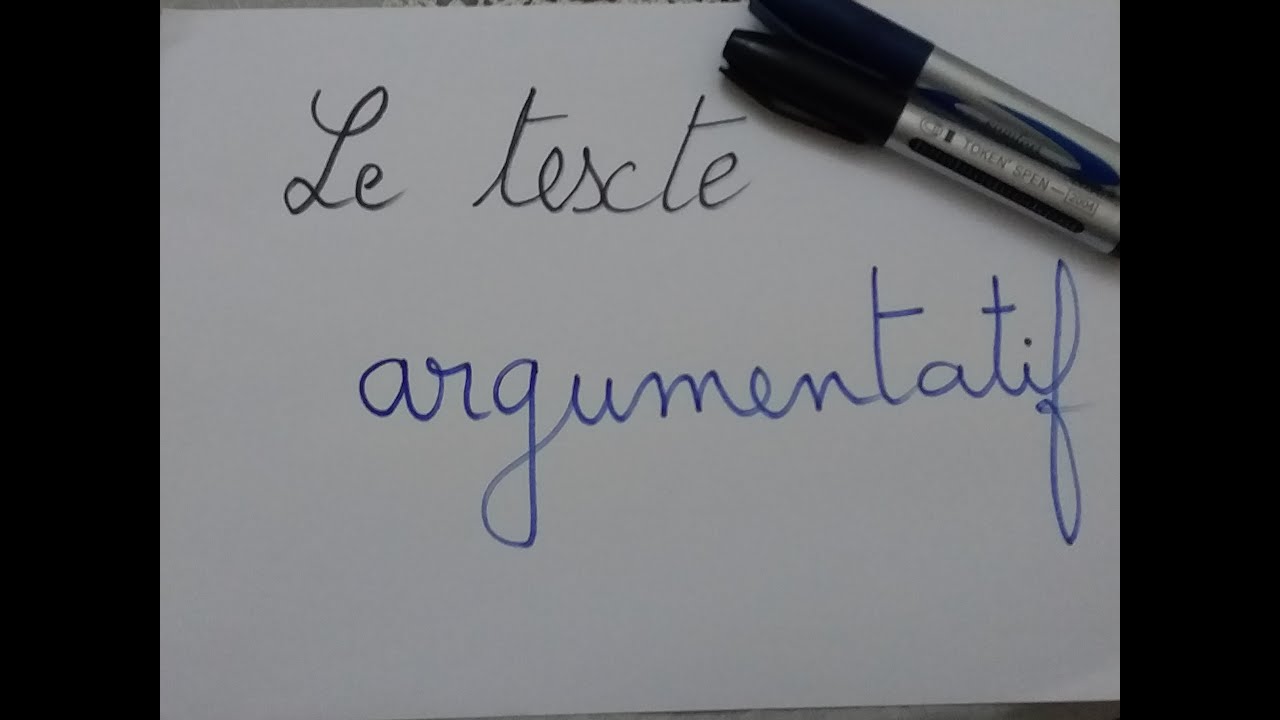 Le texte
argumentatif
TOKEN' SPEN
2004